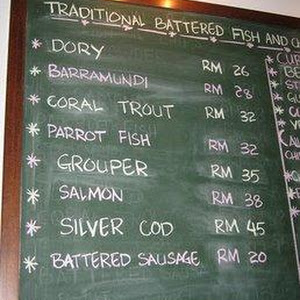 TRADITIONAL BATTERED FISH AND
* DORY RM 26
* BARRAMUNDI RM 28
* CORAL TROUT RM 32
* PARROT FISH RM 32
* GROUPER RM 35
* SALMON RM 38
* SILVER COD RM 45
* BATTERED SAUSAGE RM 20